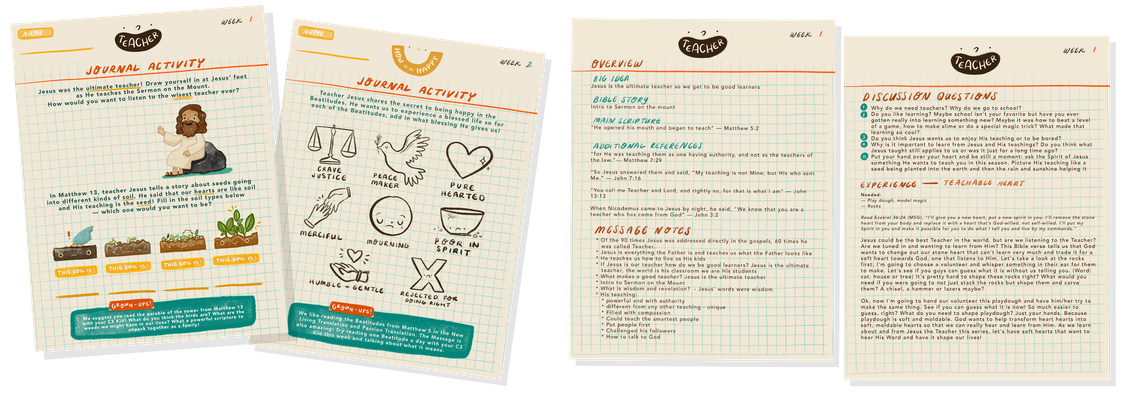 NAME
TEACHER
WEEK 1
JOURNAL ACTIVITY
Jesus was the ultimate teacher! Draw yourself in at Jesus' feet
as He teaches the Sermon on the Mount.
How would you want to listen to the wisest teacher ever?
In Matthew 13, teacher Jesus tells a story about seeds going
into different kinds of soil. He said that our hearts are like soil
and His teaching is the seed! Fill in the soil types below
— which one would you want to be?
THIS SOIL IS:
THIS SOIL IS:
THIS SOIL IS:
THIS SOIL IS:
GROWN-UPS!
We suggest you read the parable of the sower from Matthew 13
with your C3 Kid! What do you think the birds are? What are the
weeds we might have in our lives? What a powerful scripture to
unpack together as a family!
NAME
HOW to be HAPPY
WEEK 2
JOURNAL ACTIVITY
Teacher Jesus shares the secret to being happy in the
Beatitudes. He wants us to experience a blessed life so for
each of the Beatitudes, add in what blessing He gives us!
CRAVE
JUSTICE
PEACE
MAKER
PURE
HEARTED
MERCIFUL
MOURNING
POOR IN
SPIRIT
HUMBLE + GENTLE
REJECTED FOR
DOING RIGHT
GROWN-UPS!
We like reading the Beatitudes from Matthew 5 in the New
Living Translation and Passion Translation. The Message is
also amazing! Try reading one Beatitude a day with your C3
Kid this week and talking about what it means.
TEACHER
WEEK 1
OVERVIEW
BIG IDEA
Jesus is the ultimate teacher so we get to be good learners
BIBLE STORY
Intro to Sermon on the mount
MAIN SCRIPTURE
"He opened his mouth and began to teach" — Matthew 5:2
ADDITIONAL REFERENCES
"for He was teaching them as one having authority, and not as the teachers of
the law."— Matthew 7:29
"So Jesus answered them and said, "My teaching is not Mine, but His who sent
Me." — John 7:16
"You call me Teacher and Lord, and rightly so, for that is what I am" — John
13:13
When Nicodemus came to Jesus by night, he said, "We know that you are a
teacher who has come from God" — John 3:2
MESSAGE NOTES
* Of the 90 times Jesus was addressed directly in the gospels, 60 times he
was called Teacher.
* Jesus is everything the Father is and teaches us what the Father looks like
* He teaches us how to live as His kids
* If Jesus is our teacher how do we be good learners? Jesus is the ultimate
teacher, the world is his classroom we are His students
* What makes a good teacher? Jesus is the ultimate teacher
* Intro to Sermon on the Mount
* What is wisdom and revelation? - Jesus' words were wisdom
* His teaching:
* powerful and with authority
* different from any other teaching - unique
* Filled with compassion
* Could teach the smartest people
* Put people first
* Challenged his followers
* How to talk to God
TEACHER
WEEK 1
DISCUSSION QUESTIONS
1 Why do we need teachers? Why do we go to school?
2 Do you like learning? Maybe school isn't your favorite but have you ever
gotten really into learning something new? Maybe it was how to beat a level
of a game, how to make slime or do a special magic trick? What made that
learning so cool?
3 Do you think Jesus wants us to enjoy His teaching or to be bored?
4 Why is it important to learn from Jesus and His teachings? Do you think what
Jesus taught still applies to us or was it just for a long time ago?
Put your hand over your heart and be still a moment: ask the Spirit of Jesus
something He wants to teach you in this season. Picture His teaching like a
seed being planted into the earth and then the rain and sunshine helping it
EXPERIENCE — TEACHABLE HEART
Needed:
— Play dough, model magic
— Rocks
Read Ezekiel 36:26 (MSG), "I'll give you a new heart, put a new spirit in you; I'll remove the stone
heart from your body and replace it with a heart that's God-willed, not self-willed, I'll put my
Spirit in you and make it possible for you to do what I tell you and live by my commands."
Jesus could be the best Teacher in the world, but are we listening to the Teacher?
Are we tuned in and wanting to learn from Him? This Bible verse tells us that God
wants to change out our stone heart that can't learn very much and trade it for a
soft heart towards God, one that listens to Him. Let's take a look at the rocks
first; I'm going to choose a volunteer and whisper something in their ear for them
to make. Let's see if you guys can guess what it is without us telling you. (Word:
cat, house or tree) It's pretty hard to shape these rocks right? What would you
need if you were going to not just stack the rocks but shape them and carve
them? A chisel, a hammer or lazers maybe?
Ok, now I'm going to hand our volunteer this playdough and have him/her try to
make the same thing. See if you can guess what it is now! So much easier to
guess, right? What do you need to shape playdough? Just your hands. Because
playdough is soft and moldable. God wants to help transform heart hearts into
soft, moldable hearts so that we can really hear and learn from Him. As we learn
about and from Jesus the Teacher this year, let's have soft hearts that want to
hear His Word and have it shape our lives!